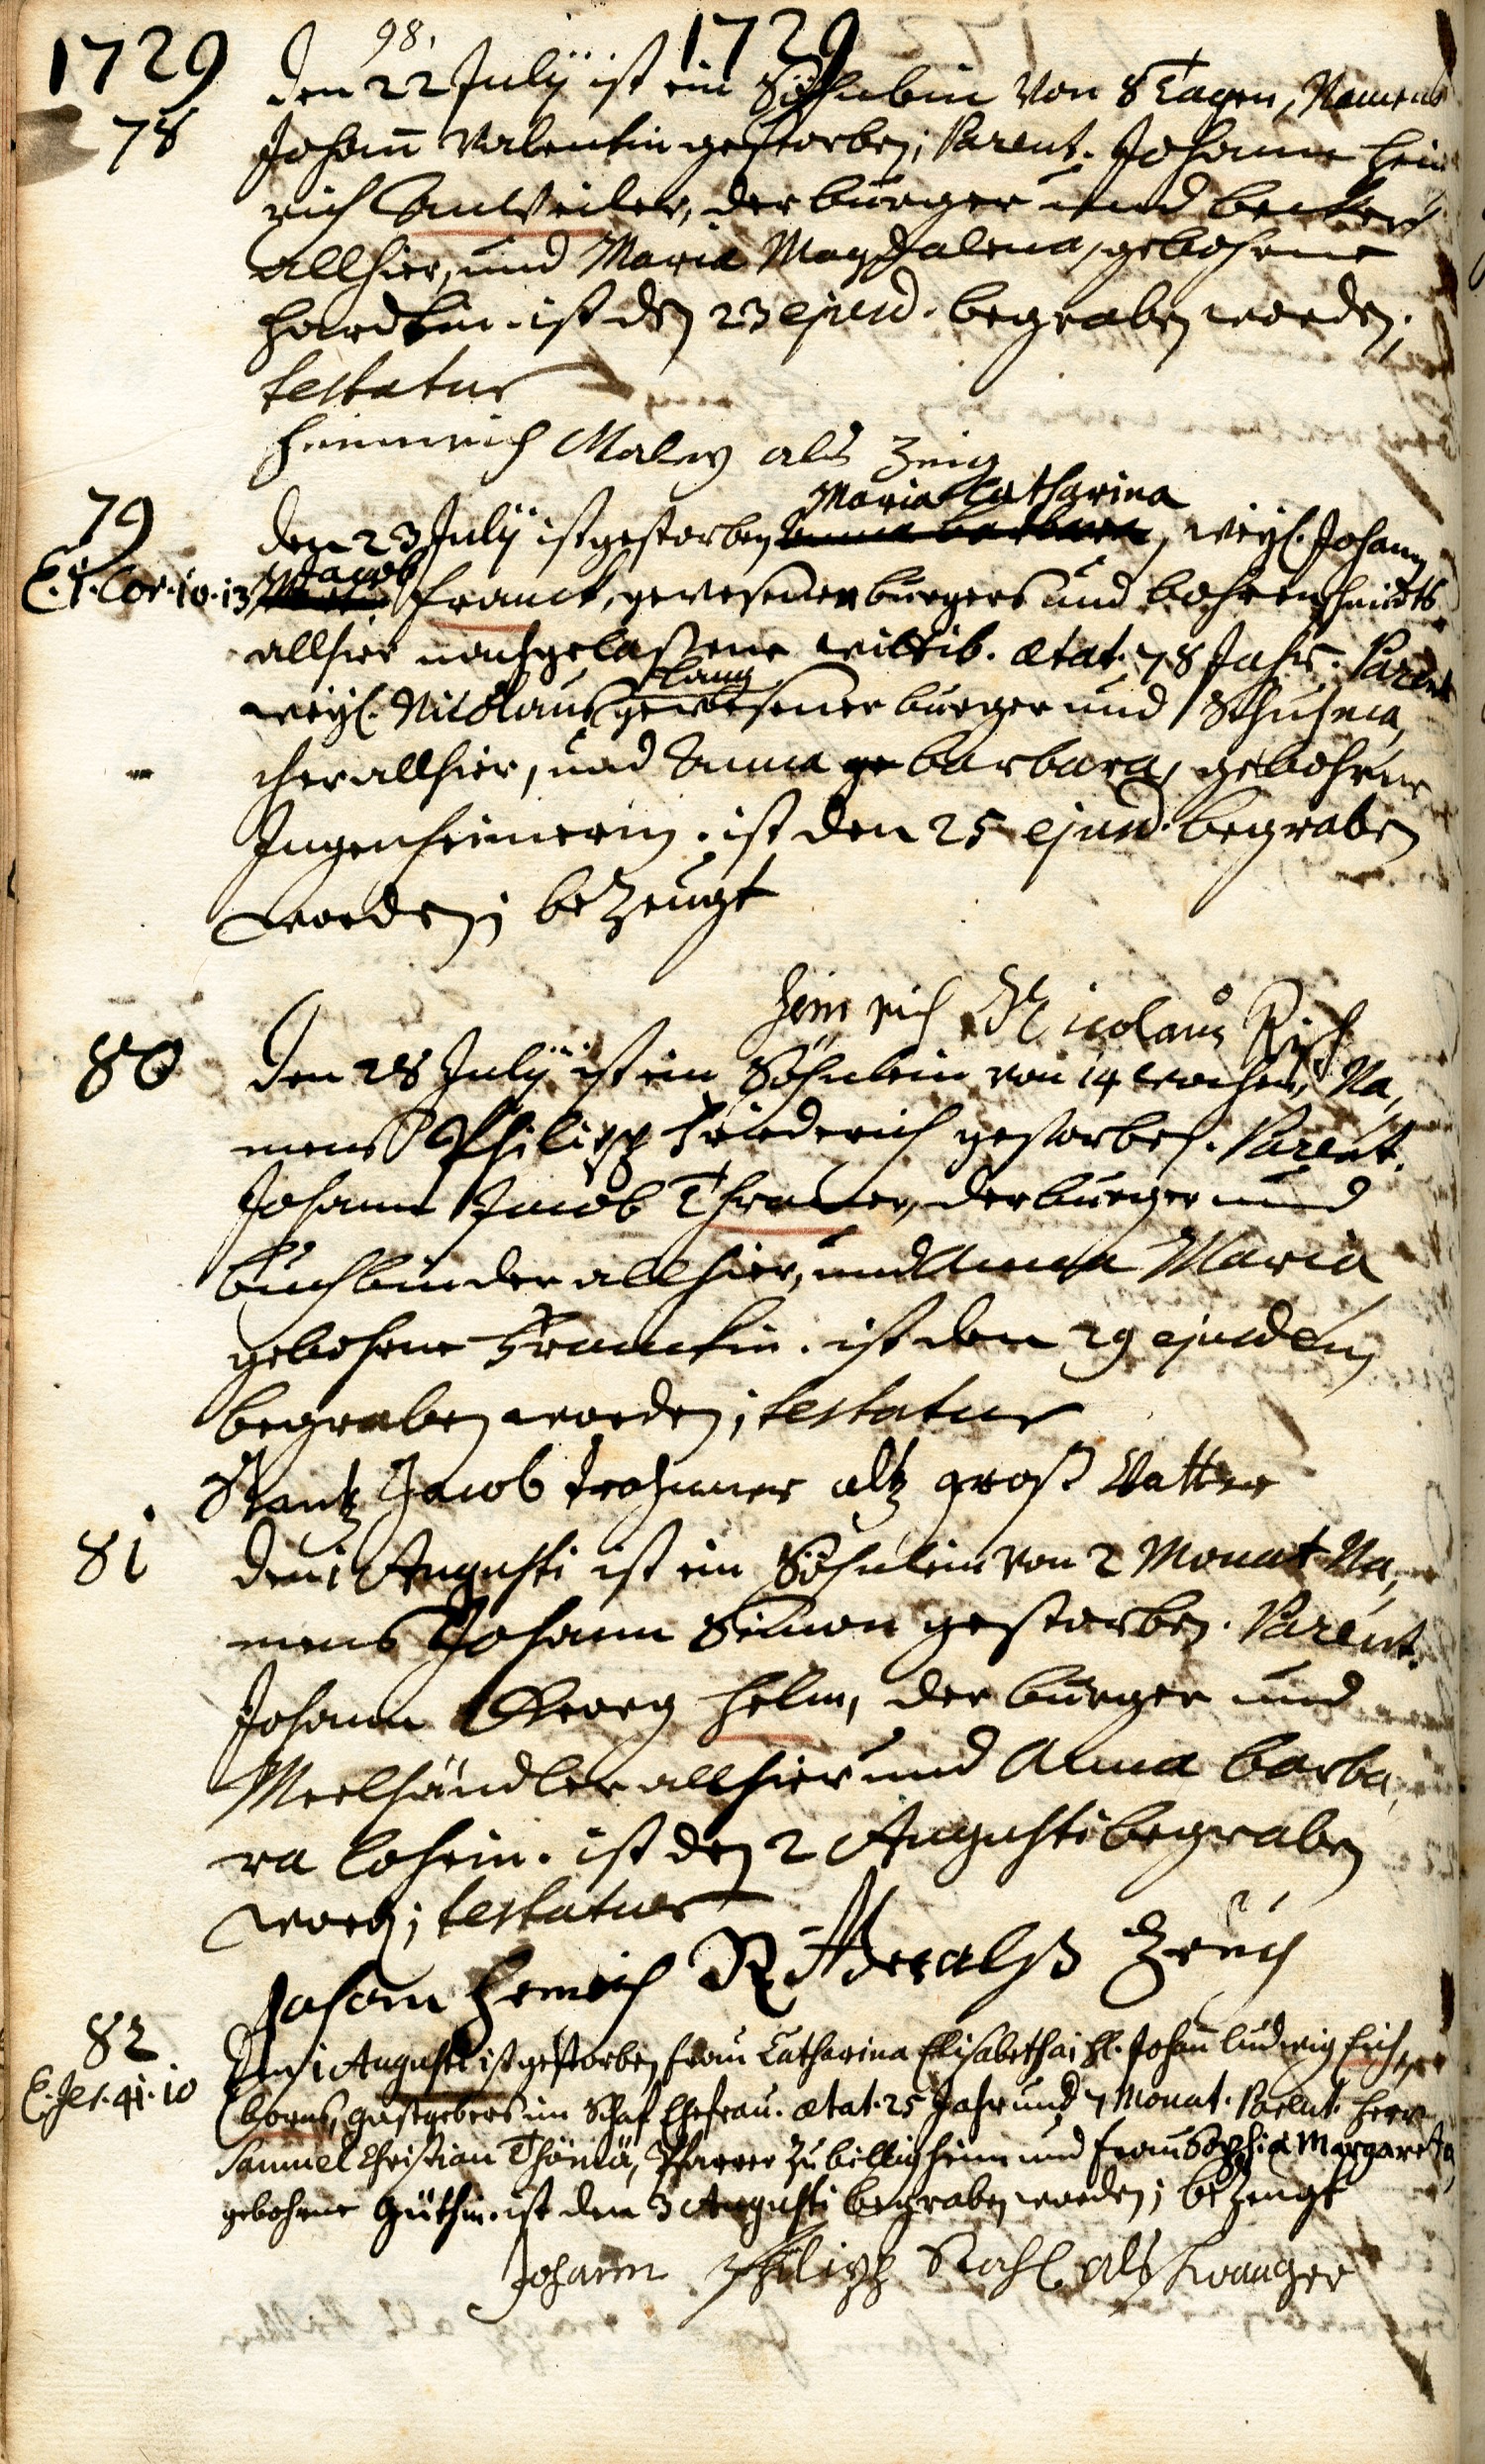 98.
1729 1729
78 Den 22 Julÿ ist ein Söhnlein von 8 Tagen, Namens
Johann Valentin gestorben; Parent. Johann Hein
rich Anweiler, der burger und becker
allhier, und Maria Magdalena, gebohrne
ist den 23 ejusd. begraben worden;
testatur
Heinnrich als Zeig
79 Maria Catharina
Den 23 Julÿ ist gestorben Anna Barbara, weyl. Johann
Jacob
E. 1. Cor. 10. 13 Franck, gewesenen burgers und bohrenschmidts
allhier nachgelaßene wittib. ætat. 78 Jahr. Parent
Lang
weyl. Nicolaus gewesener burger und Schuhma,
cher allhier, und Anna ge barbara, gebohrne
Ingenheimerin. ist den 25 ejusd. begraben
worden; bezeugt
Heinrich Nicolaus
80 Den 28 Julÿ ist ein Söhnlein von 14 wochen, Na,
mens Philipp Friederich gestorben. Parent.
Johann Jacob der burger und
buchbinder allhier, und Anna Maria
gebohrne Franckin. ist den 29 ejusdem
begraben worden; testatur
Frantz Jacob als groß Vatter
81 Den 1 Augusti ist ein Söhnlein von 2 Monat Na,
mens Johann Simon gestorben. Parent.
Johann Georg Helm, der burger und
Meelhändler allhier und Anna barba,
ra ist den 2 Augusti begraben
word; testatur
Johann Henrich Ritter alß Zeuch
82 Den 1 Augusti ist gestorben Frau Catharina Elisabetha, H. Johann Ludwig Eich,
E. Jes. 41. 10 borns, gastgebers im Schaf Ehefrau. ætat. 25 Jahr und 7 Monat. Parent. Herr
Samuel Christian Thomä, Pfarrer zu billigheim und Frau Sophia Margaretha,
gebohrne Güthin. ist den 3 Augusti begraben worden; bezeugt
Johann Philipp als